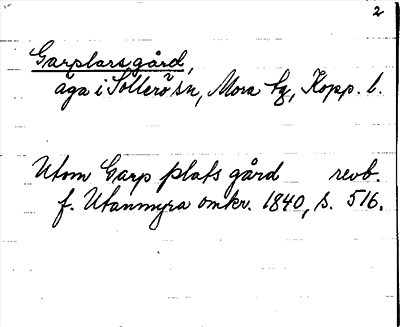 2
Garplarsgård,
äga i Sollerö sn, Mora tg, Kopp. l.
Utom Garp plats gård revb.
f. Utanmyra omkr. 1840, s. 516.